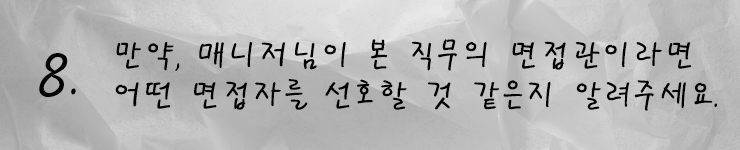 8. 만약, 매니저님이 본 직무의 면접관이라면
어떤 면접자를 선호할 것 같은지 알려주세요.